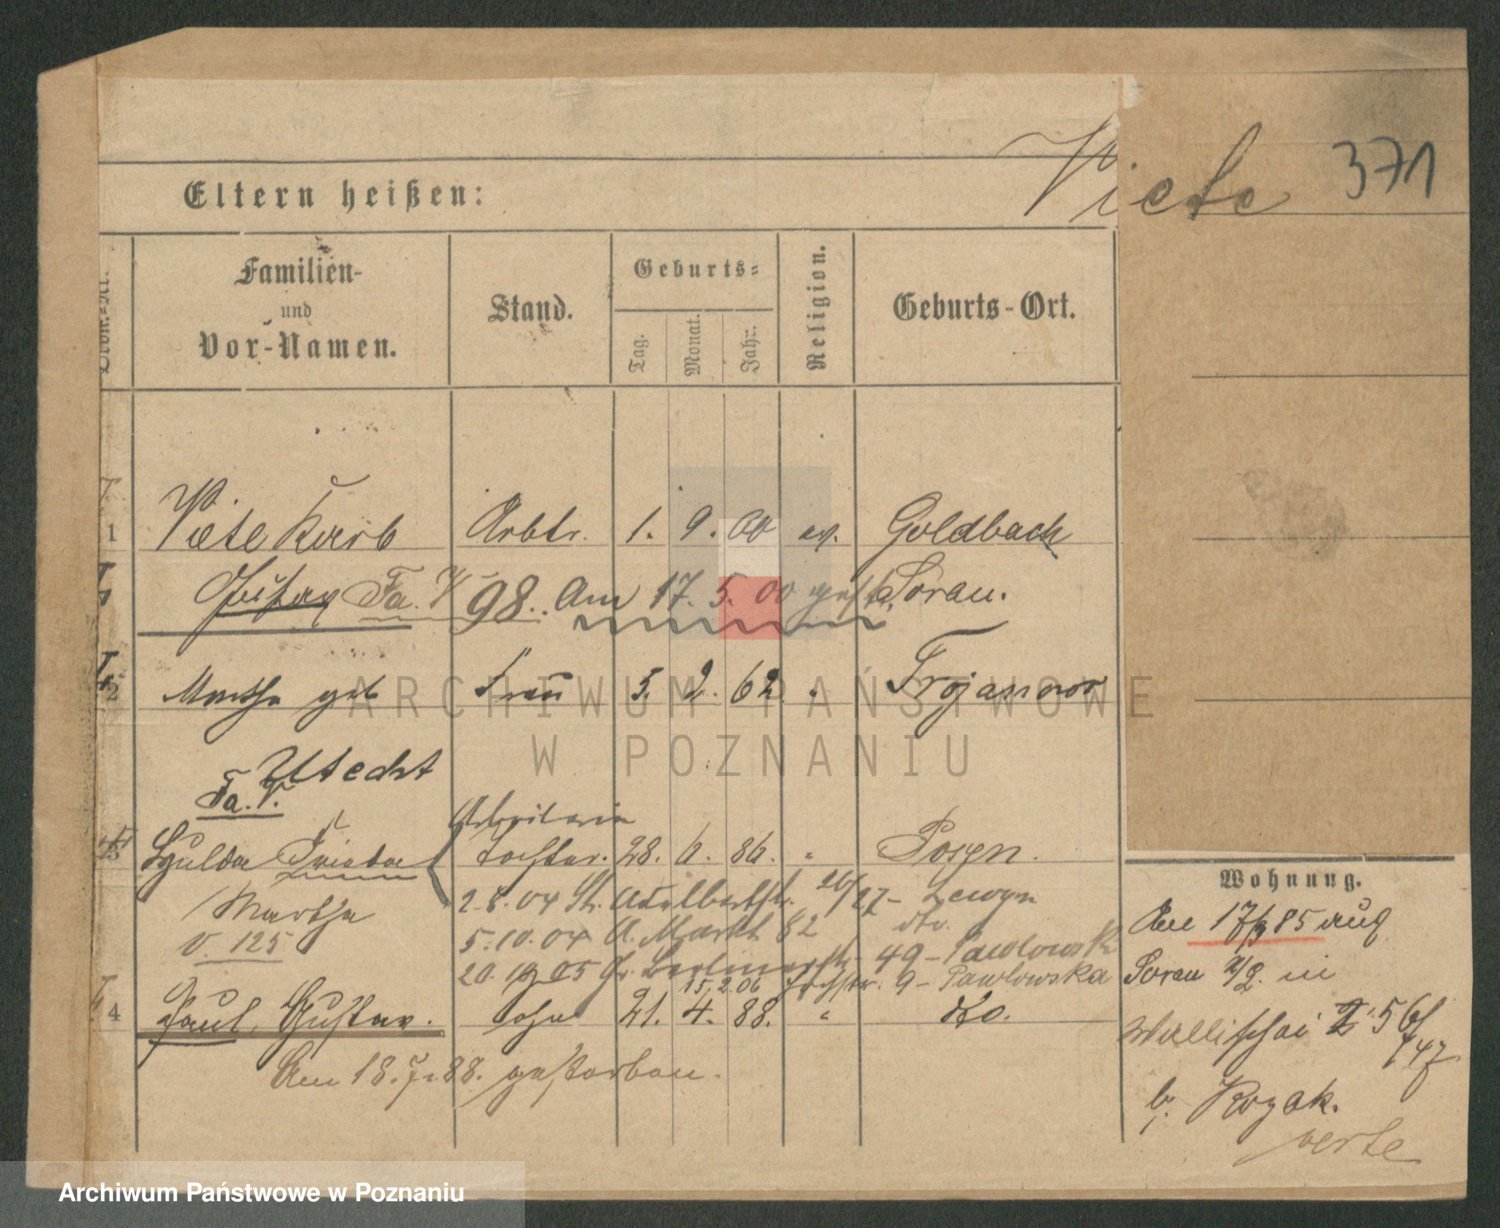 Viete 371
Eltern heißen:
Familien-
und
Vor-Namen.
Stand.
Geburts-
Tag.
Monat.
Jahr.
Religion.
Geburts-Ort.
1 Viete Karl Arbtr. 1. 9. 60 ev. Goldbach
Gustav Fa. V 98. Am 17. 5. 00 gest. Sorau.
2 Martha geb Frau 5. 2. 62 " Trojanowo
Utecht
Fa. V.
Arbeiterin
3 Hulda Frieda Tochter. 28. 6. 86. " Posen.
Martha 2. 8. 04 Adalbertstr. 26/27-
V. 125 5. 10. 04 A. Markt 82 dto.
20. 05 Gr. Berlinerstr. 49 - Pawlowsk
15. 2. 06 9 - Pawlowska
4 Paul, Gustav. Sohn 21. 4. 88. " Do.
Am 18. 7. 88. gestorben.
Wohnung.
Am 17/3 85 aus
Sorau in
Wallischei 56/
/47
b. Kozak.
verte
ARCHIWUM PAŃSTWOWE
W POZNANIU
Archiwum Państwowe w Poznaniu